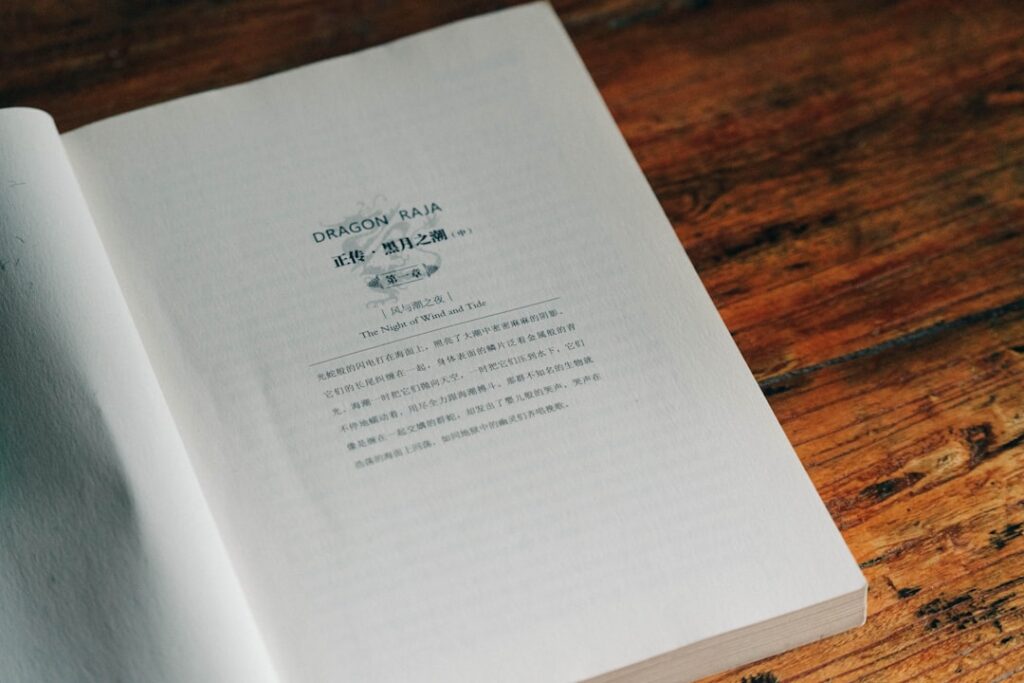 DRAGON RAJA
正传·黑月之潮(中)
第一章
|风与潮之夜|
The Night of Wind and Tide
光蛇般的闪电打在海面上,照亮了大潮中密密麻麻的阴影。
它们的长尾纠缠在一起,身体表面的鳞片泛着金属般的青
光。海潮一时把它们抛向天空,一时把它们压到水下,它们
不停地蠕动着,用尽全力跟海潮搏斗。那群不知名的生物就
像是缠在一起交媾的群蛇,却发出了婴儿般的哭声,哭声在
浩荡的海面上回荡,如同地狱中的幽灵们齐唱挽歌。